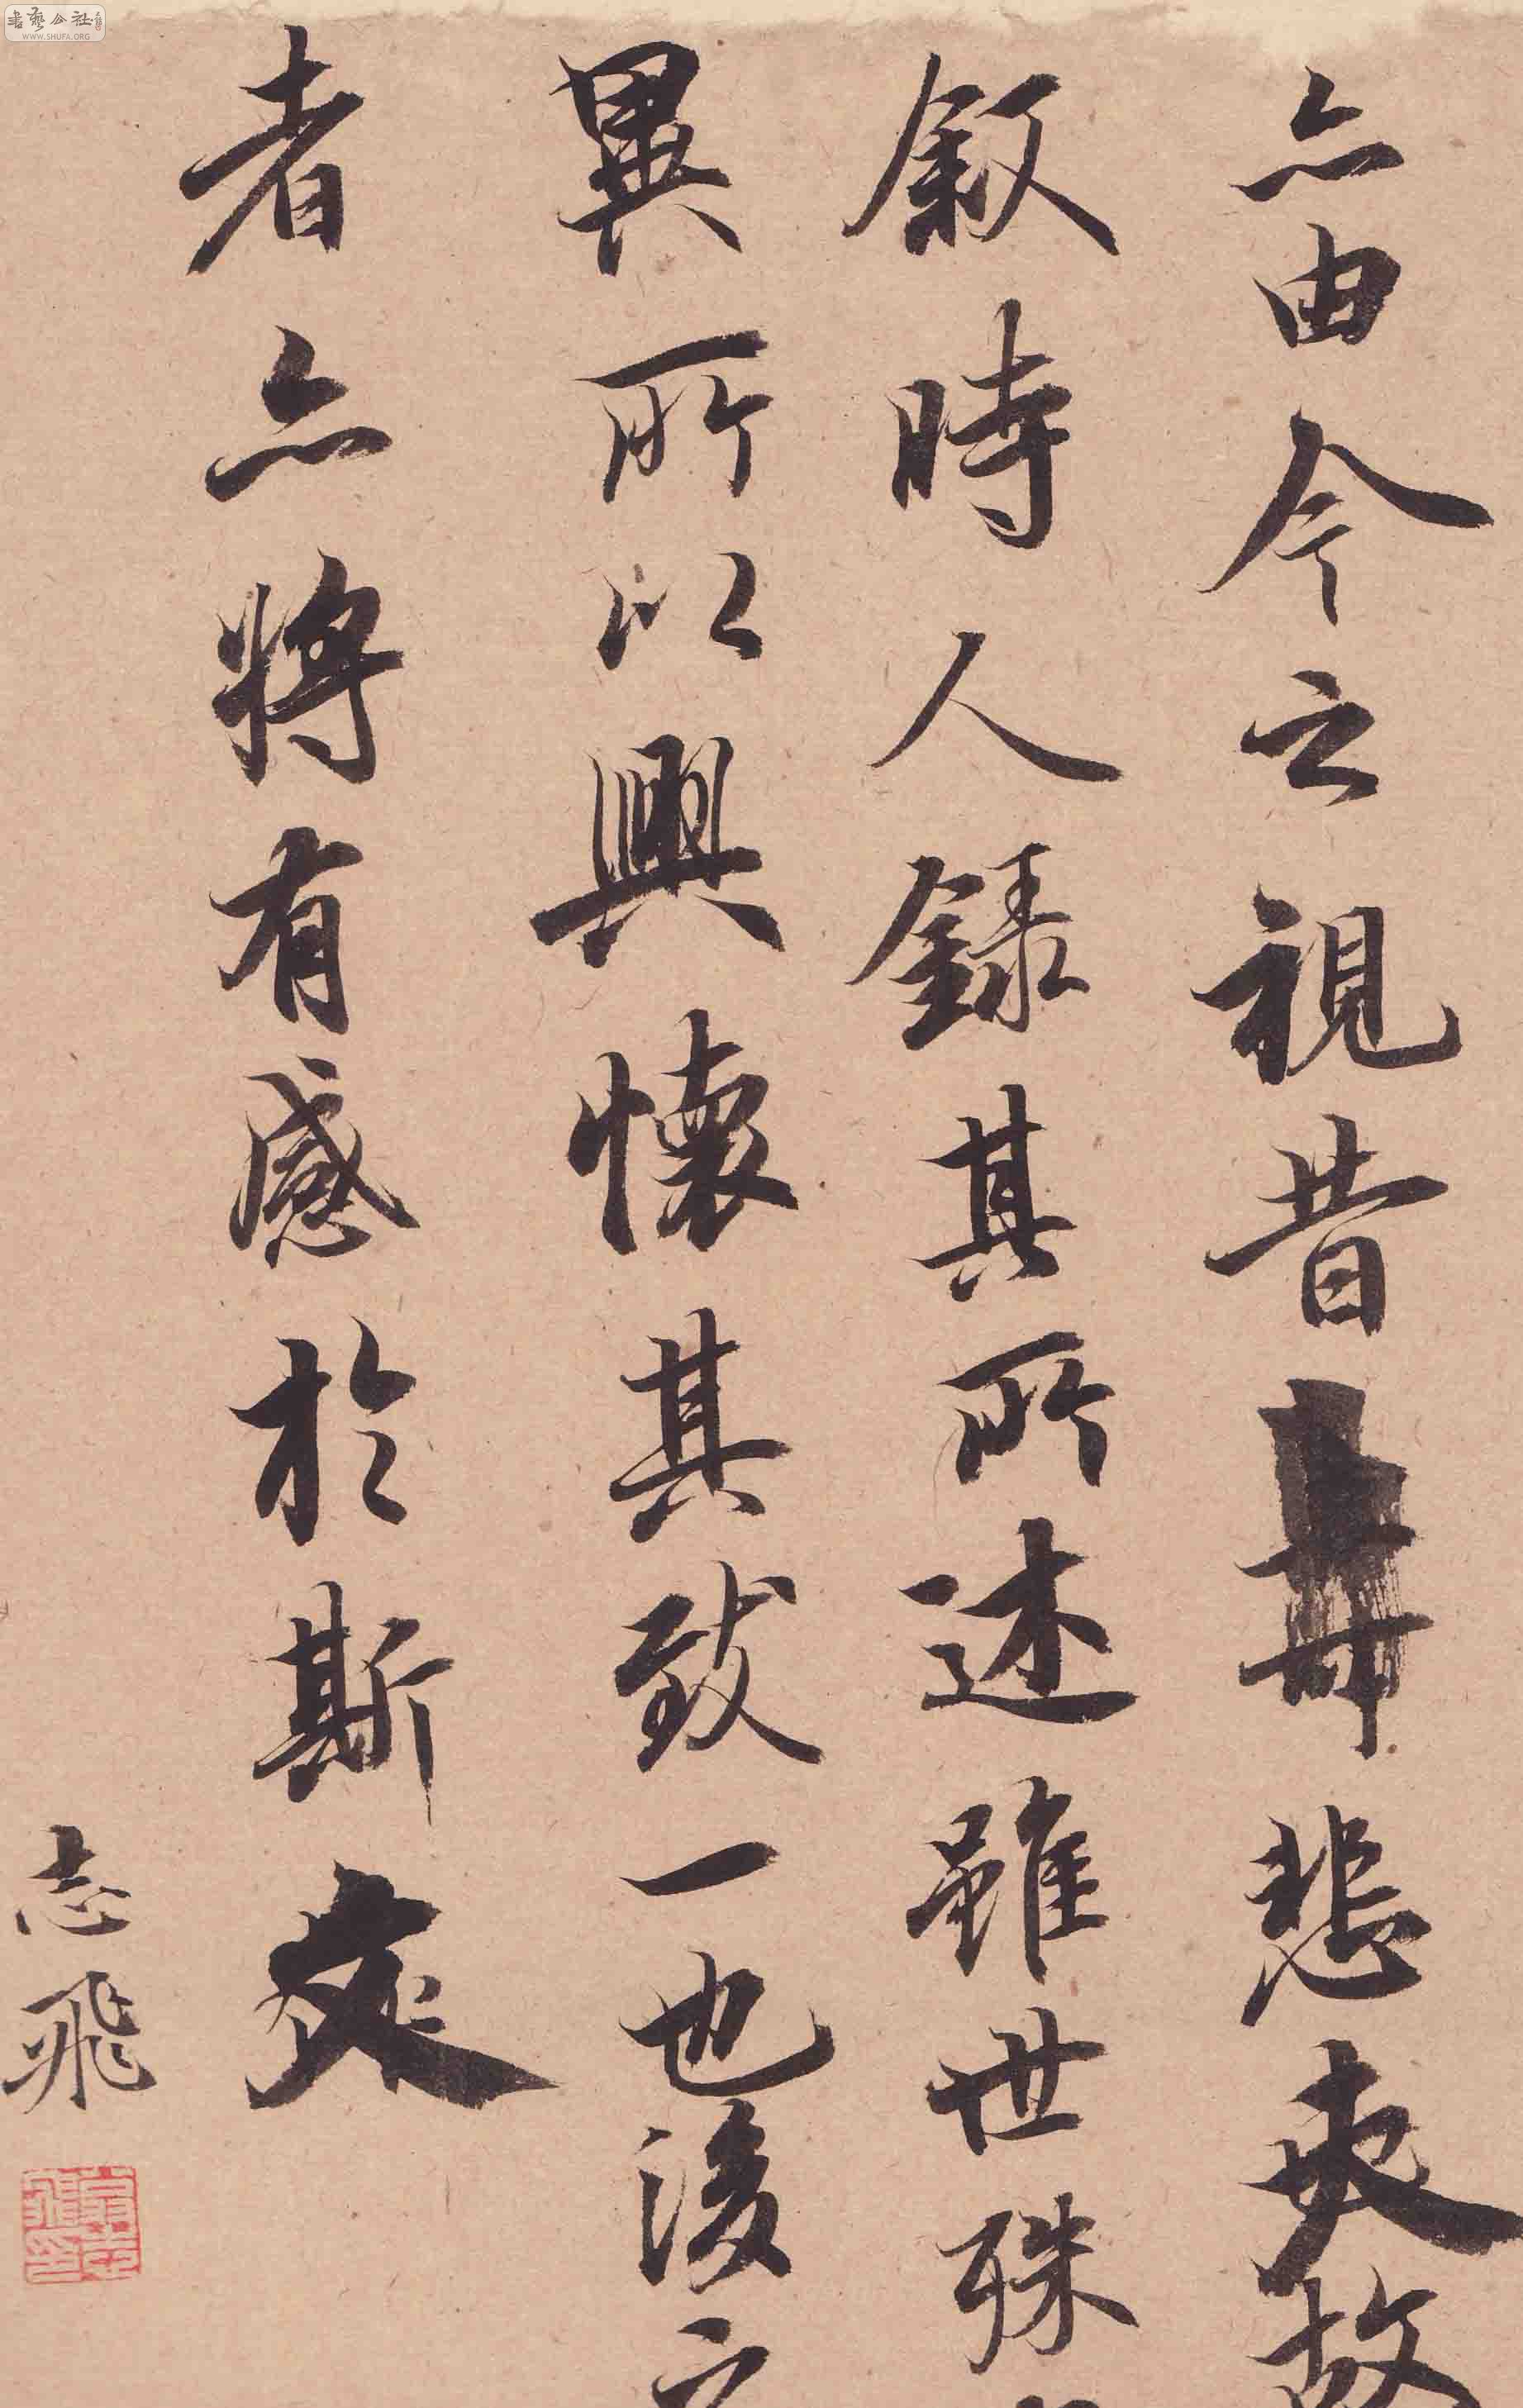 亦由今之視昔悲夫故
敘時人錄其所述雖世殊
異所以興懷其致一也後之
者亦將有感於斯文
志飛
書藝公社
WWW.SHUFA.ORG